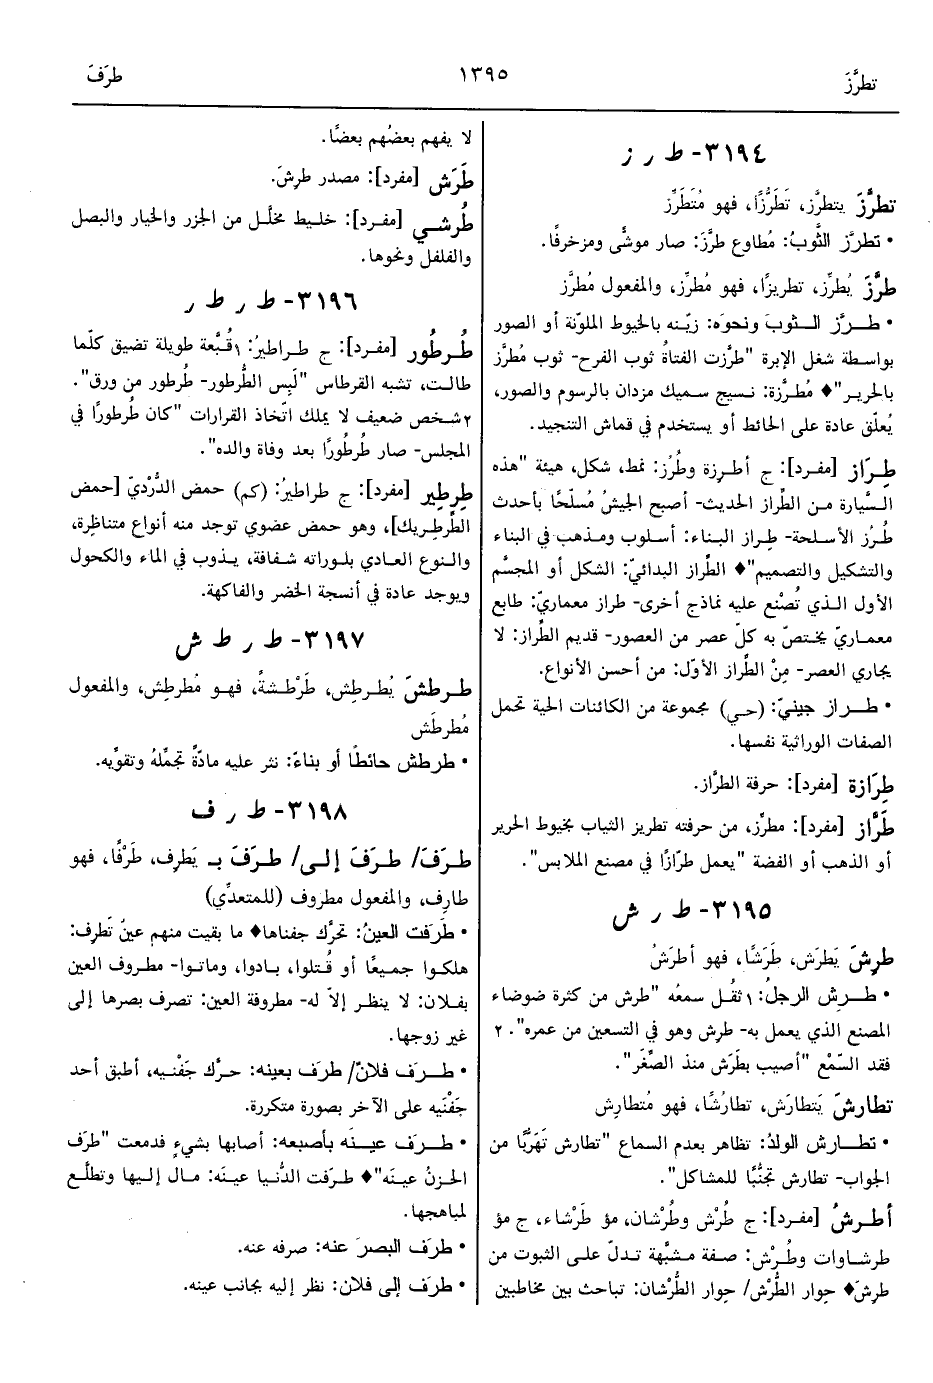 تطرَّزَ
١٣٩٥
طرَفَ
٣١٩٤- ط ر ز
تطرَّزَ يتطرَّز، تَطَرُّزًا، فهو مُتَطَرِّز
• تطرَّز الثَّوبُ: مُطاوع طرَّزَ: صار موشًّى ومزخرفًا.
طرَّزَ يُطرِّز، تطريزًا، فهو مُطرِّز، والمفعول مُطرَّز
• طـرَّز الـثوبَ ونحوَه: زيّنه بالخيوط الملوّنة أو الصور
بواسطة شغل الإبرة "طرَّزت الفتاةُ ثوب الفرح- ثوب مُطرَّز
بالحرير"♦ مُطرَّزة: نسيج سميك مزدان بالرسوم والصور،
يُعلّق عادة على الحائط أو يستخدم في قماش التنجيد.
طِرَاز [مفرد]: ج أطرِزة وطُرُز: نمط، شكل، هيئة "هذه
السَّيارة من الطِّراز الحديث- أصبح الجيشُ مُسلّحًا بأحدث
طُرُز الأسلحة- طِراز البناء: أسلوب ومذهب في البناء
والتشكيل والتصميم"♦ الطِّراز البدائيّ: الشكل أو المجسَّم
الأول الـذي تُصْنع عليه نماذج أخرى- طراز معماريّ: طابع
معماريّ يختصّ به كلّ عصر من العصور- قديم الطِّراز: لا
يجاري العصر- مِنْ الطِّراز الأوّل: من أحسن الأنواع.
• طـراز جينيّ: (حـي) مجموعة من الكائنات الحية تحمل
الصفات الوراثية نفسها.
طِرَازة [مفرد]: حرفة الطرَّاز.
طَرَّاز [مفرد]: مطرِّز، من حرفته تطريز الثياب بخيوط الحرير
أو الذهب أو الفضة "يعمل طرّازًا في مصنع الملابس".
٣١٩٥- ط ر ش
طرِشَ يَطرَش، طَرَشًا، فهو أطرَشُ
• طـرِش الرجلُ: ١ثقُل سمعُه "طرِش من كثرة ضوضاء
المصنع الذي يعمل به- طرِش وهو في التسعين من عمره". ٢
فقد السَّمْع "أصيب بطَرَش منذ الصِّغَر".
تطارشَ يَتطارَش، تطارُشًا، فهو مُتطارِش
• تطـارش الولدُ: تظاهر بعدم السماع "تطارش تهرّبًا من
الجواب- تطارش تجنُّبًا للمشاكل".
أطـرشُ [مفـرد]: ج طُرْش وطُرْشان، مؤ طَرْشاء، ج مؤ
طرشاوات وطُرْش: صفة مشبَّهة تدلّ على الثبوت من
طرِشَ♦ حِوار الطُّرْش/ حِوار الطُّرْشان: تباحث بين مخاطبين
لا يفهم بعضُهم بعضًا.
طَرَش [مفرد]: مصدر طرِشَ.
طُرشـي [مفرد]: خليط مخلَّل من الجزر والخيار والبصل
والفلفل ونحوها.
٣١٩٦- ط ر ط ر
طُـرطُور [مفـرد]: ج طـراطيرُ: ١قُبَّعة طويلة تضيق كلّما
طالت، تشبه القرطاس "لَبِس الطُّرطور- طُرطور من ورق".
٢شخص ضعيف لا يملك اتخاذ القرارات "كان طُرطورًا في
المجلس- صار طُرطُورًا بعد وفاة والده".
طِرطِير [مفرد]: ج طراطيرُ: (كم) حمض الدُّرْديّ [حمض
الطَّرطريك]، وهو حمض عضوي توجد منه أنواع متناظرة،
والنوع العادي بلـوراته شـفافة، يـذوب في الماء والكحول
ويوجد عادة في أنسجة الخضر والفاكهة.
٣١٩٧- ط ر ط ش
طـرطشَ يُطـرطِش، طَرْطـشةً، فهـو مُطرطِش، والمفعول
مُطرطَش
• طرطش حائطًا أو بناءً: نثر عليه مادّةً تجمِّلهُ وتقوِّيه.
٣١٩٨- ط ر ف
طـرَفَ/ طـرَفَ إلـى/ طـرَفَ بـ يَطرِف، طَرْفًا، فهو
طارِف، والمفعول مطروف (للمتعدِّي)
• طَرَفت العينُ: تحرَّك جفناها♦ ما بقيت منهم عينٌ تَطرِف:
هلكـوا جمـيعًا أو قُـتلوا، بـادوا، وماتـوا- مطـروف العين
بفـلان: لا ينظـر إلاّ له- مطروفة العين: تصرف بصرها إلى
غير زوجها.
• طـرَف فلانٌ/ طرَف بعينه: حـرَّك جَفْنـيه، أطبق أحد
جَفْنَيه على الآخر بصورة متكررة.
• طـرَف عيـنَه بأصبعه: أصابها بشيءٍ فدمعت "طرَف
الحـزنُ عينَه"♦ طـرَفت الدُّنيا عينَه: مـال إلـيها وتطلَّـع
لمباهجها.
• طرَف البصرَ عنه: صرفه عنه.
• طرَف إلى فلان: نظر إليه بجانب عينه.